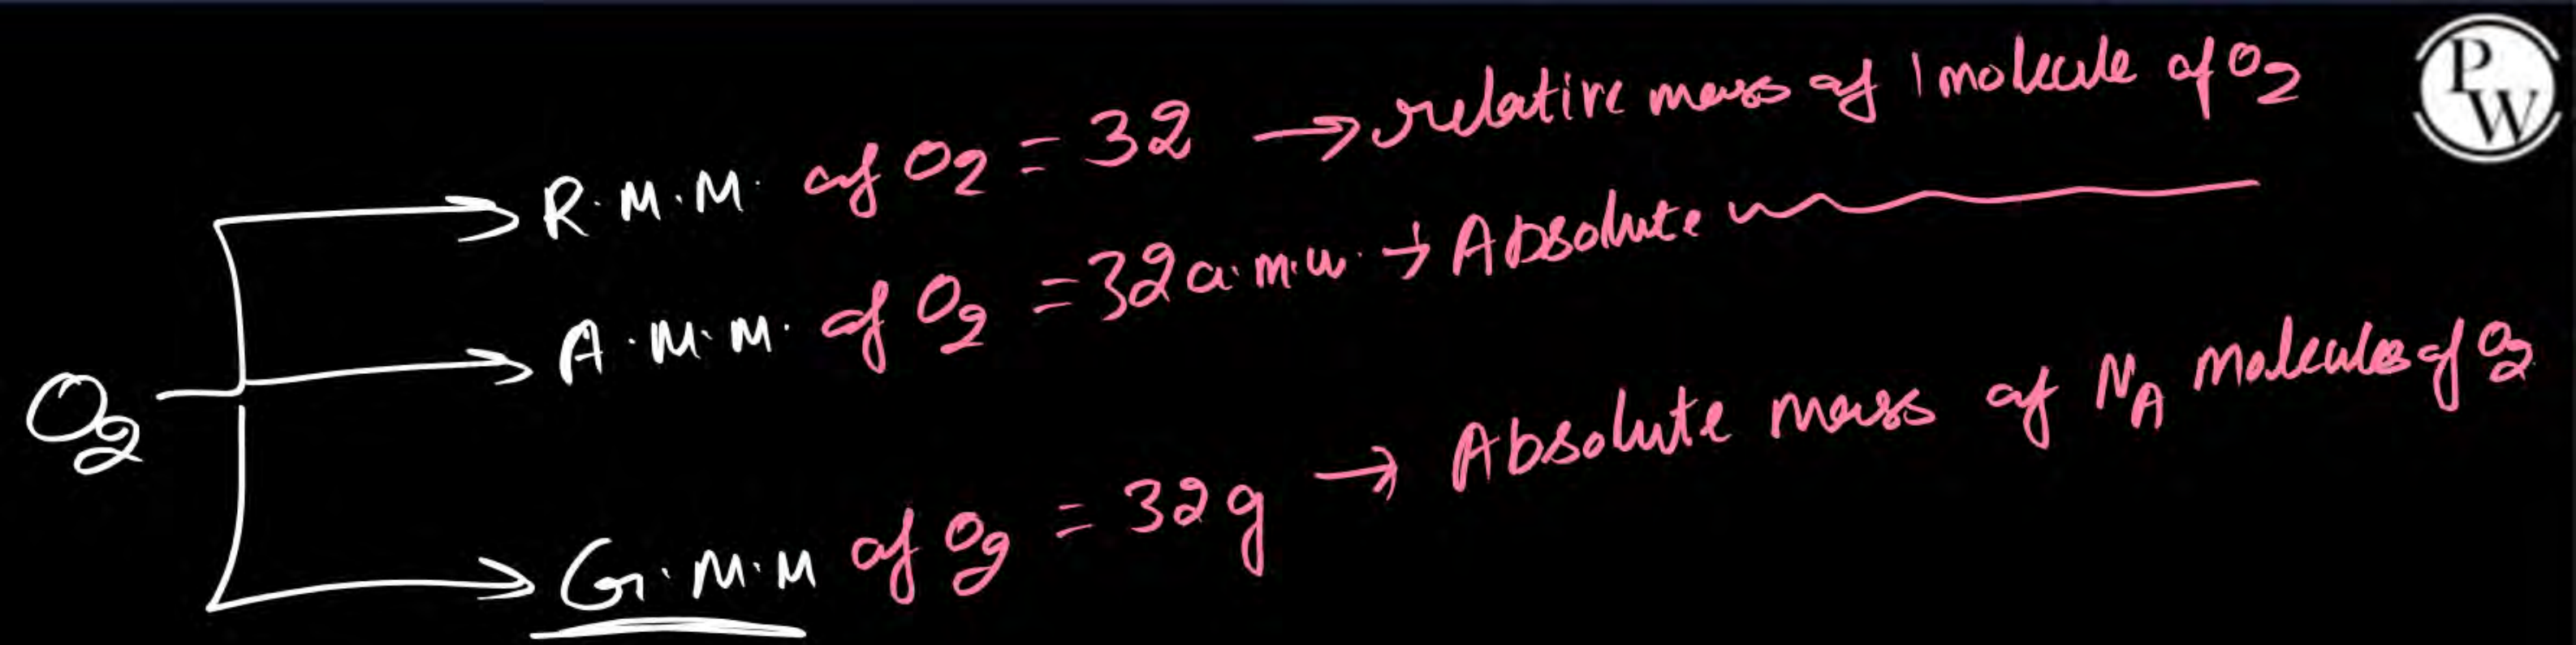 R.M.M. of O2 = 32 → relative mass of 1 molecule of O2
A.M.M. of O2 = 32 a.m.u. → Absolute
O2
G.M.M of O2 = 32g → Absolute mass of NA molecules of O2
PW